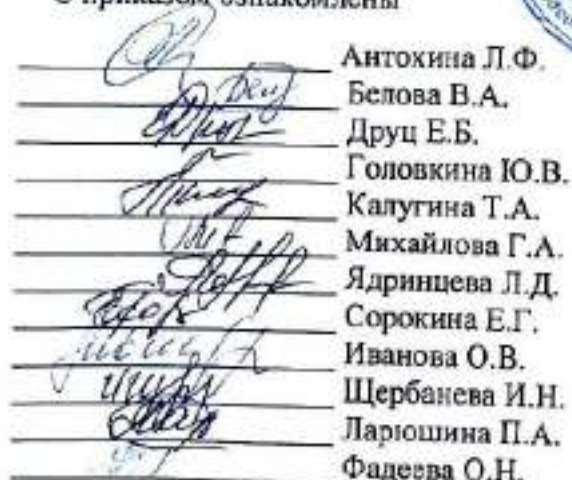 С приказом ознакомлены
Антохина Л.Ф.
Белова В.А.
Друц Е.Б.
Головкина Ю.В.
Калугина Т.А.
Михайлова Г.А.
Ядринцева Л.Д.
Сорокина Е.Г.
Иванова О.В.
Щербанева И.Н.
Ларюшина П.А.
Фадеева О.Н.